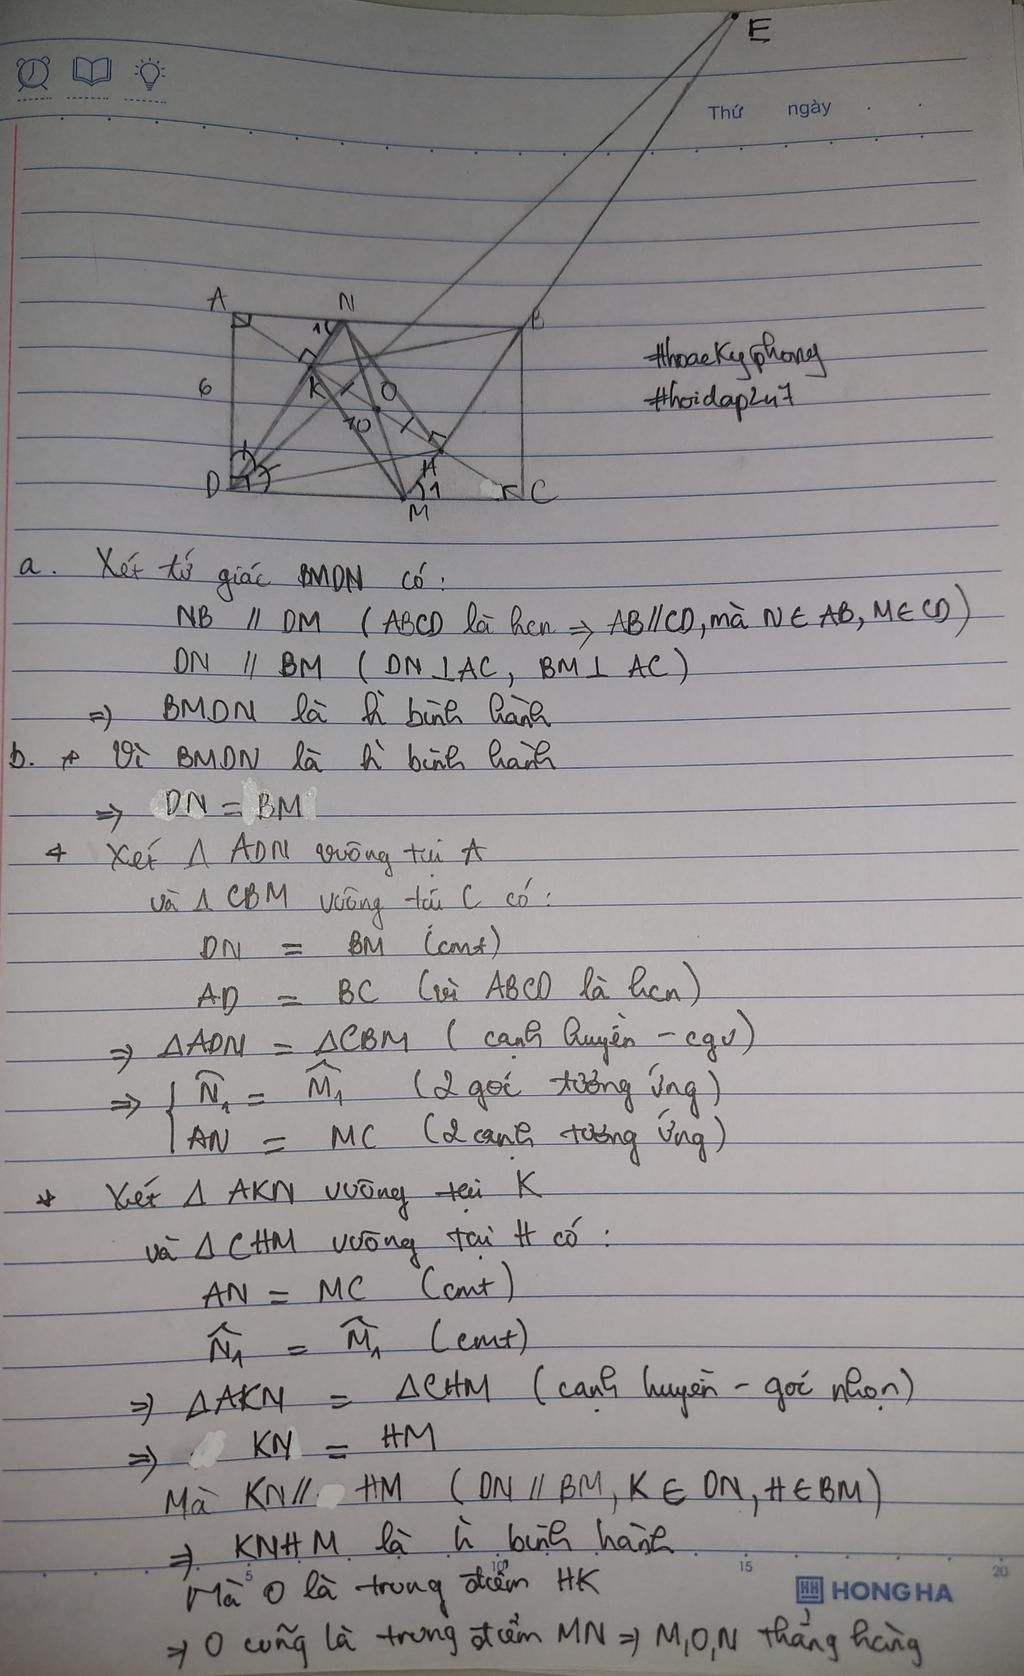 E
Thứ ngày
A N B
1
6 K O
10
#hoaekyphong
#hoidap247
D H
1 1
M C
a. Xét tứ giác BMDN có:
NB // DM (ABCD là hcn => AB//CD, mà N ∈ AB, M ∈ CD)
DN // BM (DN ⊥ AC, BM ⊥ AC)
=> BMDN là h bình hành
b. * Vì BMDN là h bình hành
=> DN = BM
+ Xét Δ ADN vuông tại A
và Δ CBM vuông tại C có:
DN = BM (cmt)
AD = BC (vì ABCD là hcn)
=> ΔADN = ΔCBM (cạnh huyền - cgv)
=> { N̂₁ = M̂₁ (2 góc tương ứng)
AN = MC (2 cạnh tương ứng)
* Xét Δ AKN vuông tại K
và Δ CHM vuông tại H có:
AN = MC (cmt)
N̂₁ = M̂₁ (cmt)
=> ΔAKN = ΔCHM (cạnh huyền - góc nhọn)
=> KN = HM
Mà KN // HM (DN // BM, K ∈ DN, H ∈ BM)
=> KNHM là h bình hành
5 10 15 20
Mà O là trung điểm HK
HH HONG HA
=> O cũng là trung điểm MN => M, O, N thẳng hàng